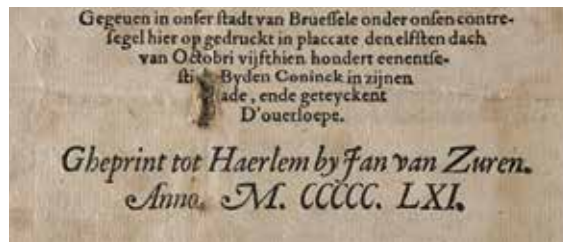 Gegeuen in onſer ſtadt van Brueſſele onder onſen contre-
ſegel hier op gedruckt in placcate den elfſten dach
van Octobri vijfthien hondert eenentſe-
ſti Byden Coninck in zijnen
ade, ende geteyckent
D'ouerloepe.
Gheprint tot Haerlem by Jan van Zuren.
Anno. M. CCCCC. LXI.